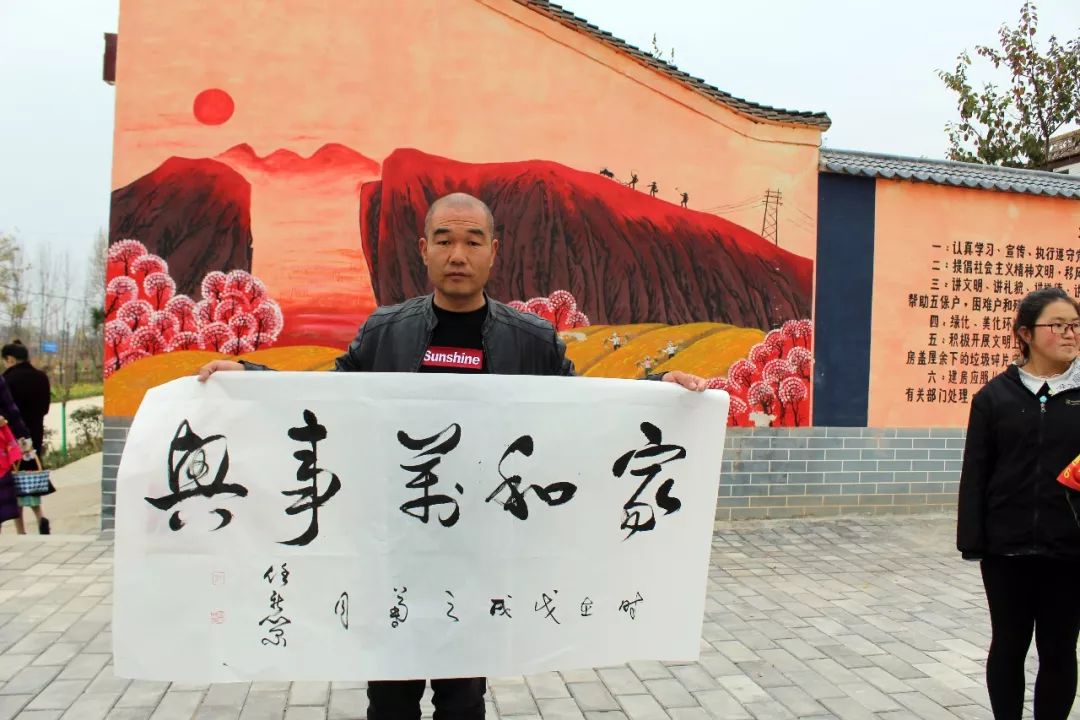 家和萬事興
时在戊戌之菊月
Sunshine
一：认真学习、宣传、执行遵守
二：提倡社会主义精神文明，移风
三：讲文明、讲礼貌、讲道德、讲
帮助五保户，困难户和
四：绿化、美化环
五：积极开展文明
房盖屋余下的垃圾碎片
六：建房应服
有关部门处理